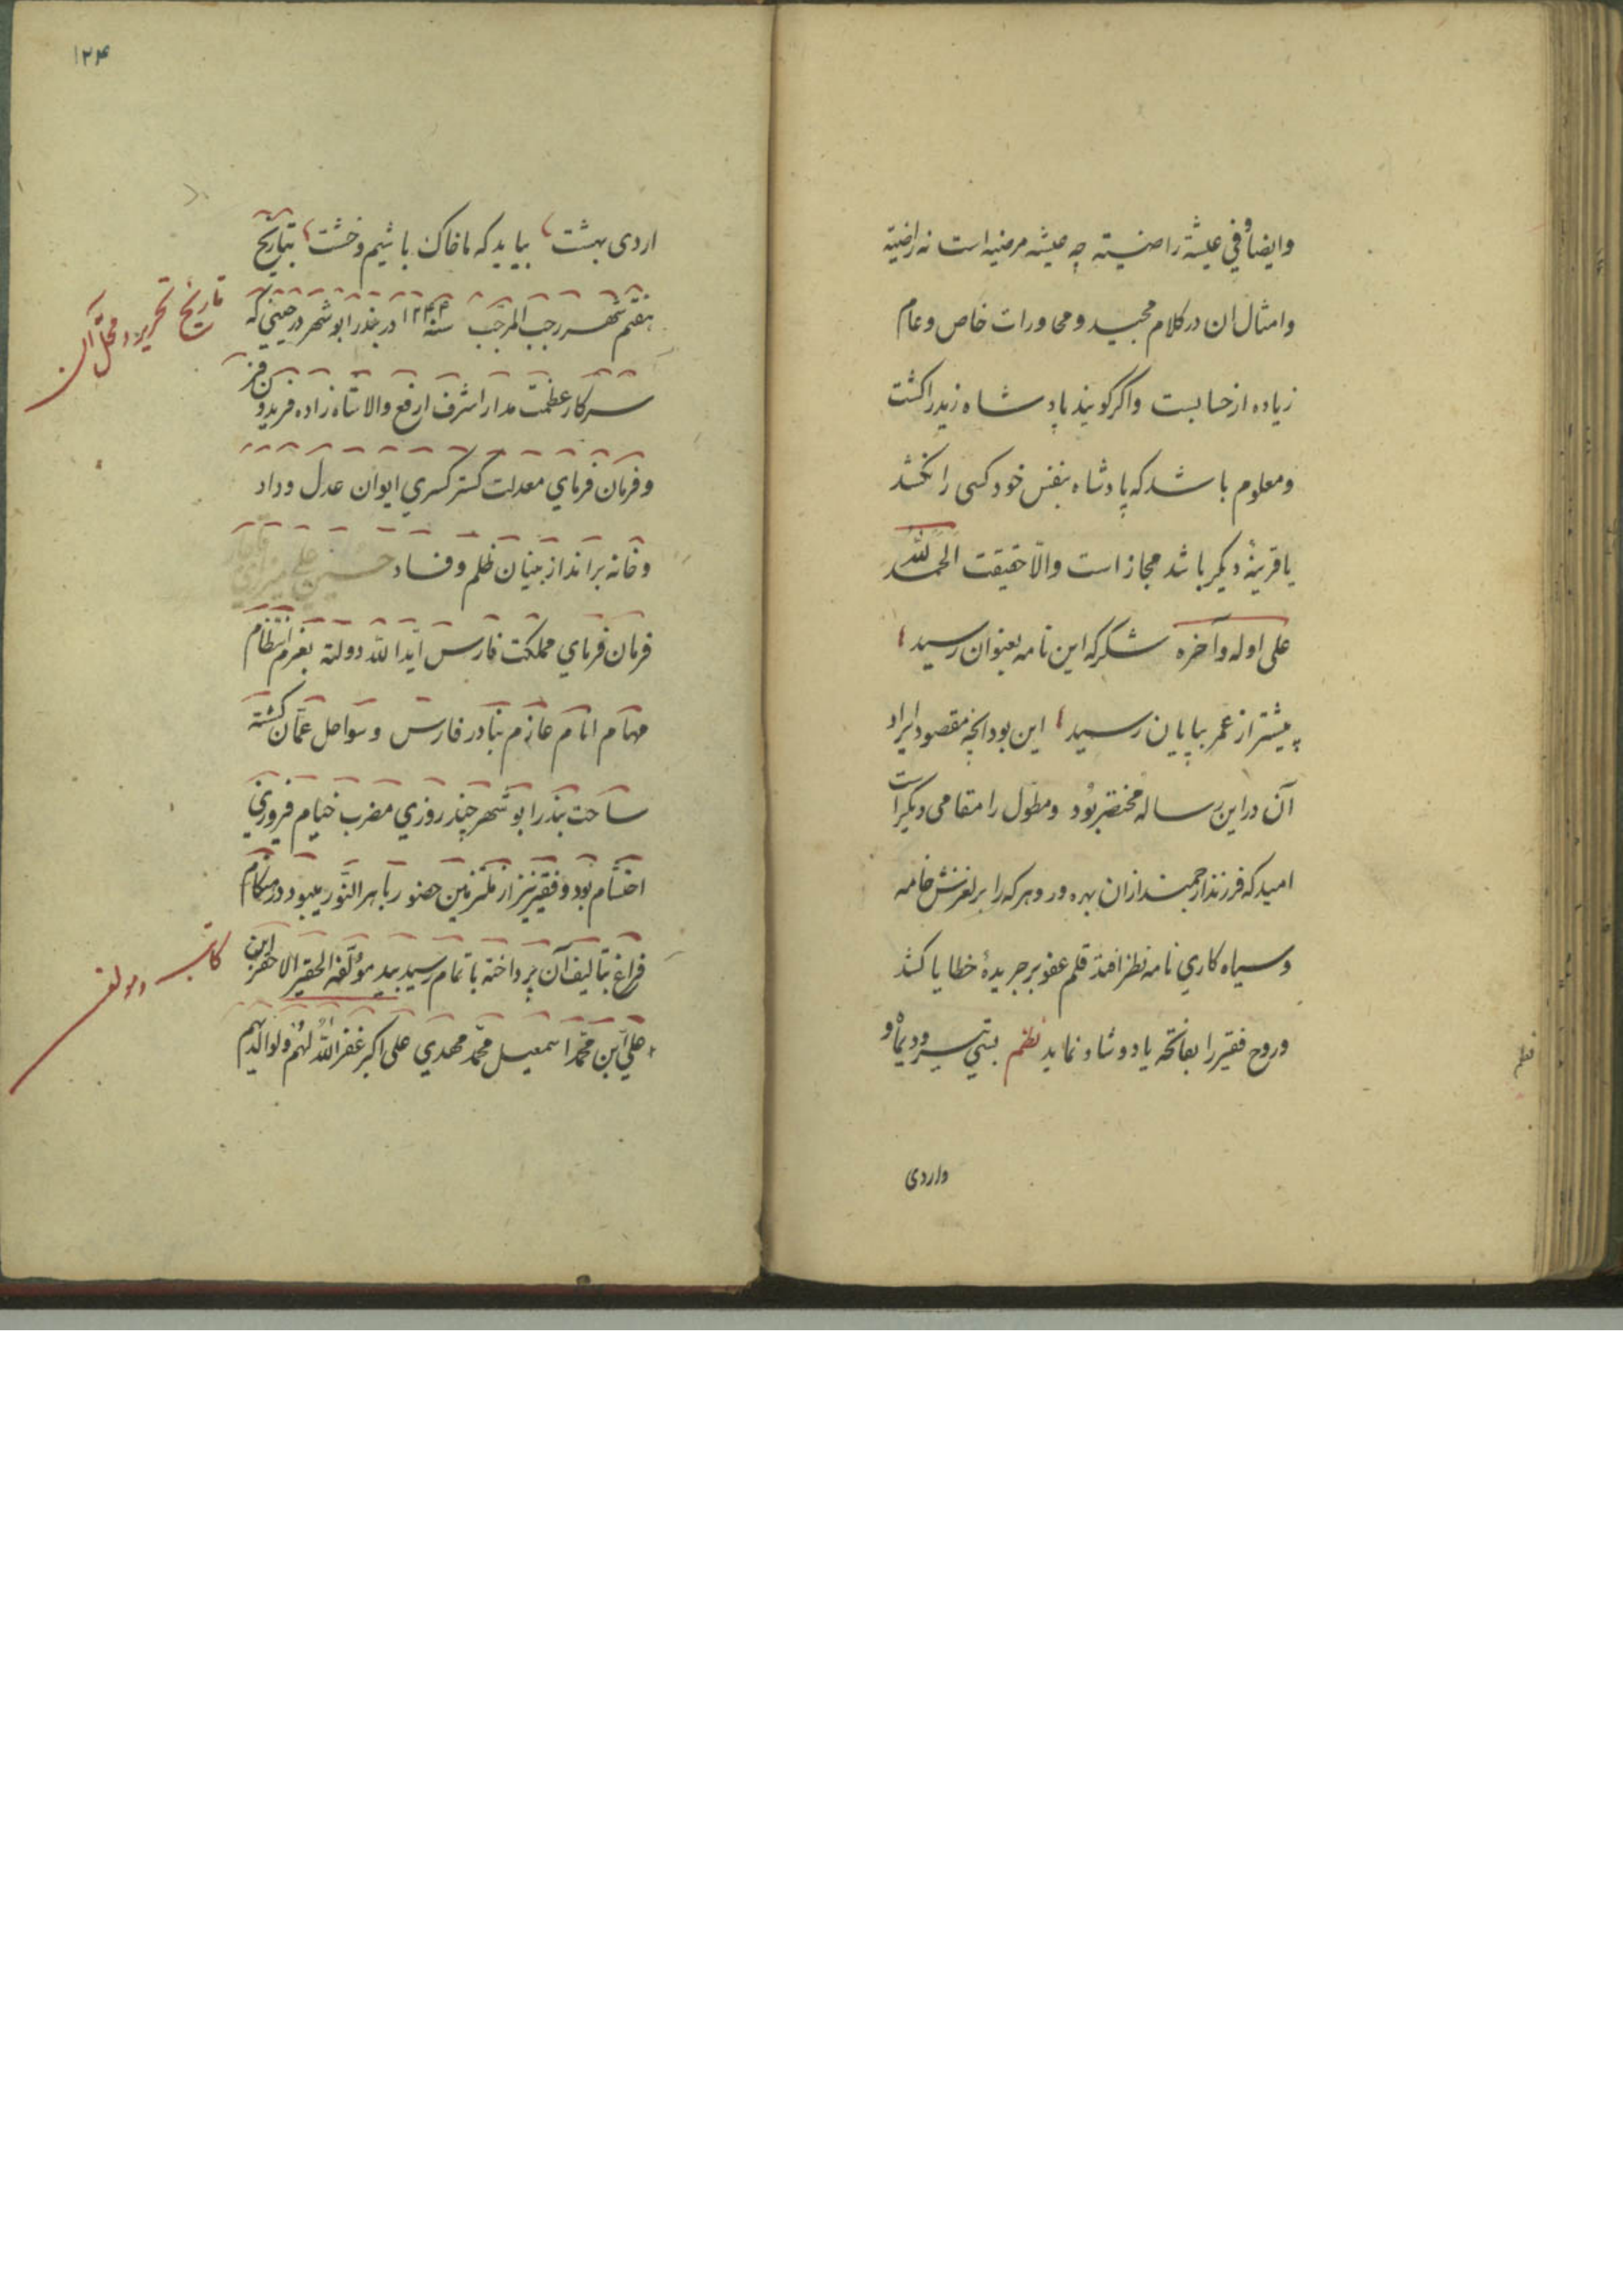 وایضاً فی عیشة راضیة چه عیشه مرضیه است نه راضیة
وامثال ان در کلام مجید و محاورات خاص وعام
زیاده از حسابست واکر کویند پادشاه زید را کشت
ومعلوم باشد که پادشاه بنفس خود کسی را نکشد
یا قرینهٔ دیکر باشد مجاز است والّا حقیقت الحمد لله
علی اوله وآخره شکر که این نامه بعنوان رسید
پیشتر از عمر بپایان رسید این بود انچه مقصود ایراد
آن در این رساله مختصر بود ومطوّل را مقامی دیکر است
امید که فرزند ارجمند ازان بهره ور وهر که را بر لغزش خامه
وسیاه کاری نامه نظر افتد قلم عفو بر جریدهٔ خطایا کشد
وروح فقیر را بفاتحه یاد و شاد نماید نظم بسی تیر و دیماه و
واردی
۱۲۴
اردی بهشت بیاید که ما خاک باشیم وخشت بتاریخ
هفتم شهر رجب المرجّب سنه ۱۲۴۴ در بندر ابو شهر در حینی که
تاریخ تحریر و محل آن
سرکار عظمت مدار اشرف ارفع والا شاه زاده فریدون فر
وفرمان فرمای معدلت کستر کسری ایوان عدل وداد
وخانه برانداز بنیان ظلم وفساد حسین علی میرزای قاجار
فرمان فرمای مملکت فارس ایّد الله دولته بعزم انتظام
مهام انام عازم بنادر فارس وسواحل عمّان کشته
ساحت بندر ابو شهر چند روزی مضرب خیام فیروزی
احتشام بود وفقیر نیز از ملتزمین حضور باهر النّور میبود در هنکام
فراغ بتألیف آن پرداخته باتمام رسید بید مؤلّفه الحقیر الاحقر ابن
کاتب و مولف
علی ابن محمّد اسمعیل محمّد مهدی علی اکبر غفر الله لهم ولوالدیهم